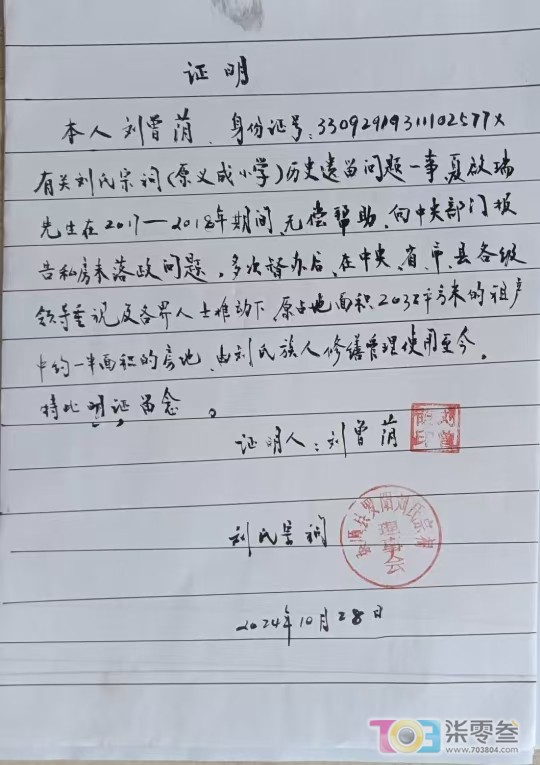 证明
本人刘曾荫,身份证号:33092919311102577X
有关刘氏宗祠(原义成小学)历史遗留问题一事,夏啟瑞
先生在2017—2018年期间,无偿帮助,向中央部门报
告私房未落政问题,多次督办后,在中央、省、市、县各级
领导重视及各界人士推动下,原占地面积2032平方米的祖产
中约一半面积的房地,由刘氏族人修缮管理使用至今。
特此明证留念。
证明人:刘曾荫
刘氏宗祠
理事会
2024年10月28日
703 柒零叁
www.703804.com